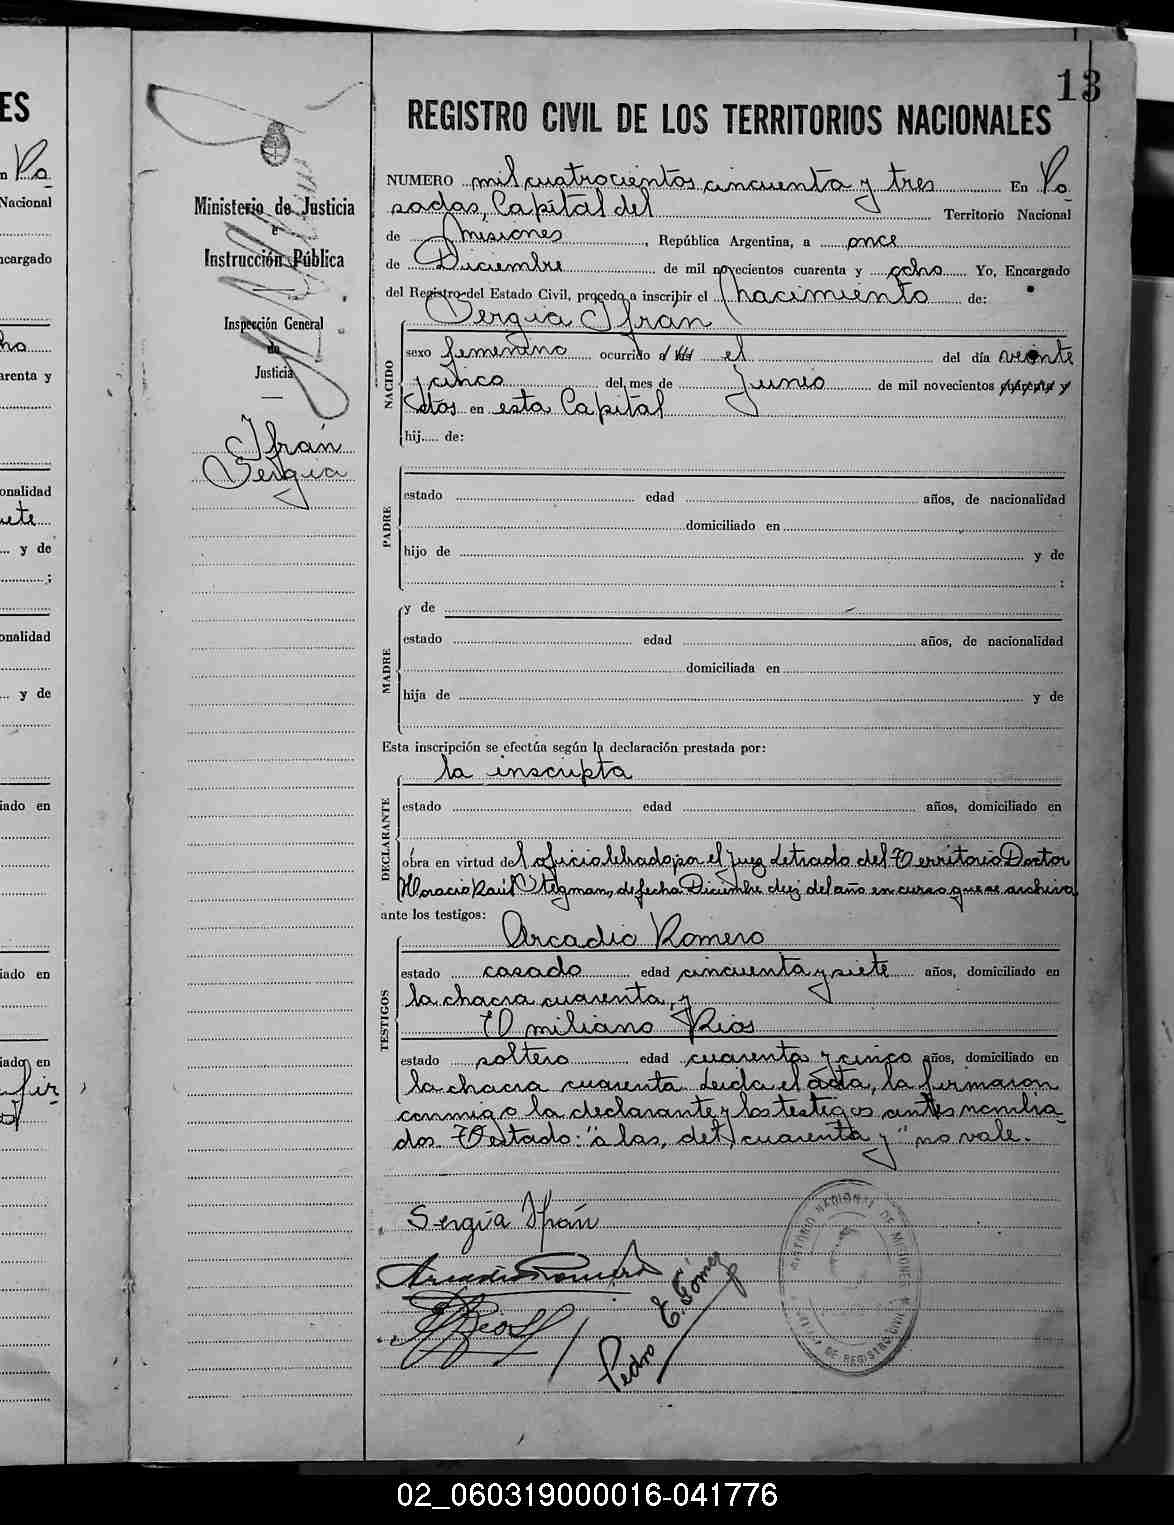 13
REGISTRO CIVIL DE LOS TERRITORIOS NACIONALES
NUMERO mil cuatrocientos cincuenta y tres En Po
sadas, Capital del Territorio Nacional
de Misiones, República Argentina, a once
de Diciembre de mil novecientos cuarenta y ocho Yo, Encargado
del Registro del Estado Civil, procedo a inscribir el nacimiento de:
Sergia Ifrán
NACIDO
sexo femenino ocurrido a las el del día veinte
y cinco del mes de Junio de mil novecientos cuarenta y
dos en esta Capital
hij..... de:
PADRE
estado edad años, de nacionalidad
domiciliado en
hijo de y de
:
MADRE
y de
estado edad años, de nacionalidad
domiciliada en
hija de y de
Esta inscripción se efectúa según la declaración prestada por:
la inscripta
DECLARANTE
estado edad años, domiciliado en
obra en virtud del oficio librado por el Juez Letrado del Territorio Doctor
Horacio Raúl Stegman, de fecha Diciembre diez del año en curso que se archiva
ante los testigos:
TESTIGOS
Arcadio Romero
estado casado edad cincuenta y siete años, domiciliado en
la chacra cuarenta, y
Emiliano Rios
estado soltero edad cuarenta y cinco años, domiciliado en
la chacra cuarenta Leida el acta, la firmaron
conmigo la declarante y los testigos antes nombra
dos. Testado: "a las, det, cuarenta y" no vale.
Sergia Ifrán
Arcadio Romero
E Rios
Pedro E. Gómez
Ministerio de Justicia
e
Instrucción Pública
Inspección General
de
Justicia
Ifrán
Sergia
ES
n Po
Nacional
ncargado
ho
arenta y
onalidad
y de
;
onalidad
y de
iado en
iado en
iado en
fir
02_060319000016-041776